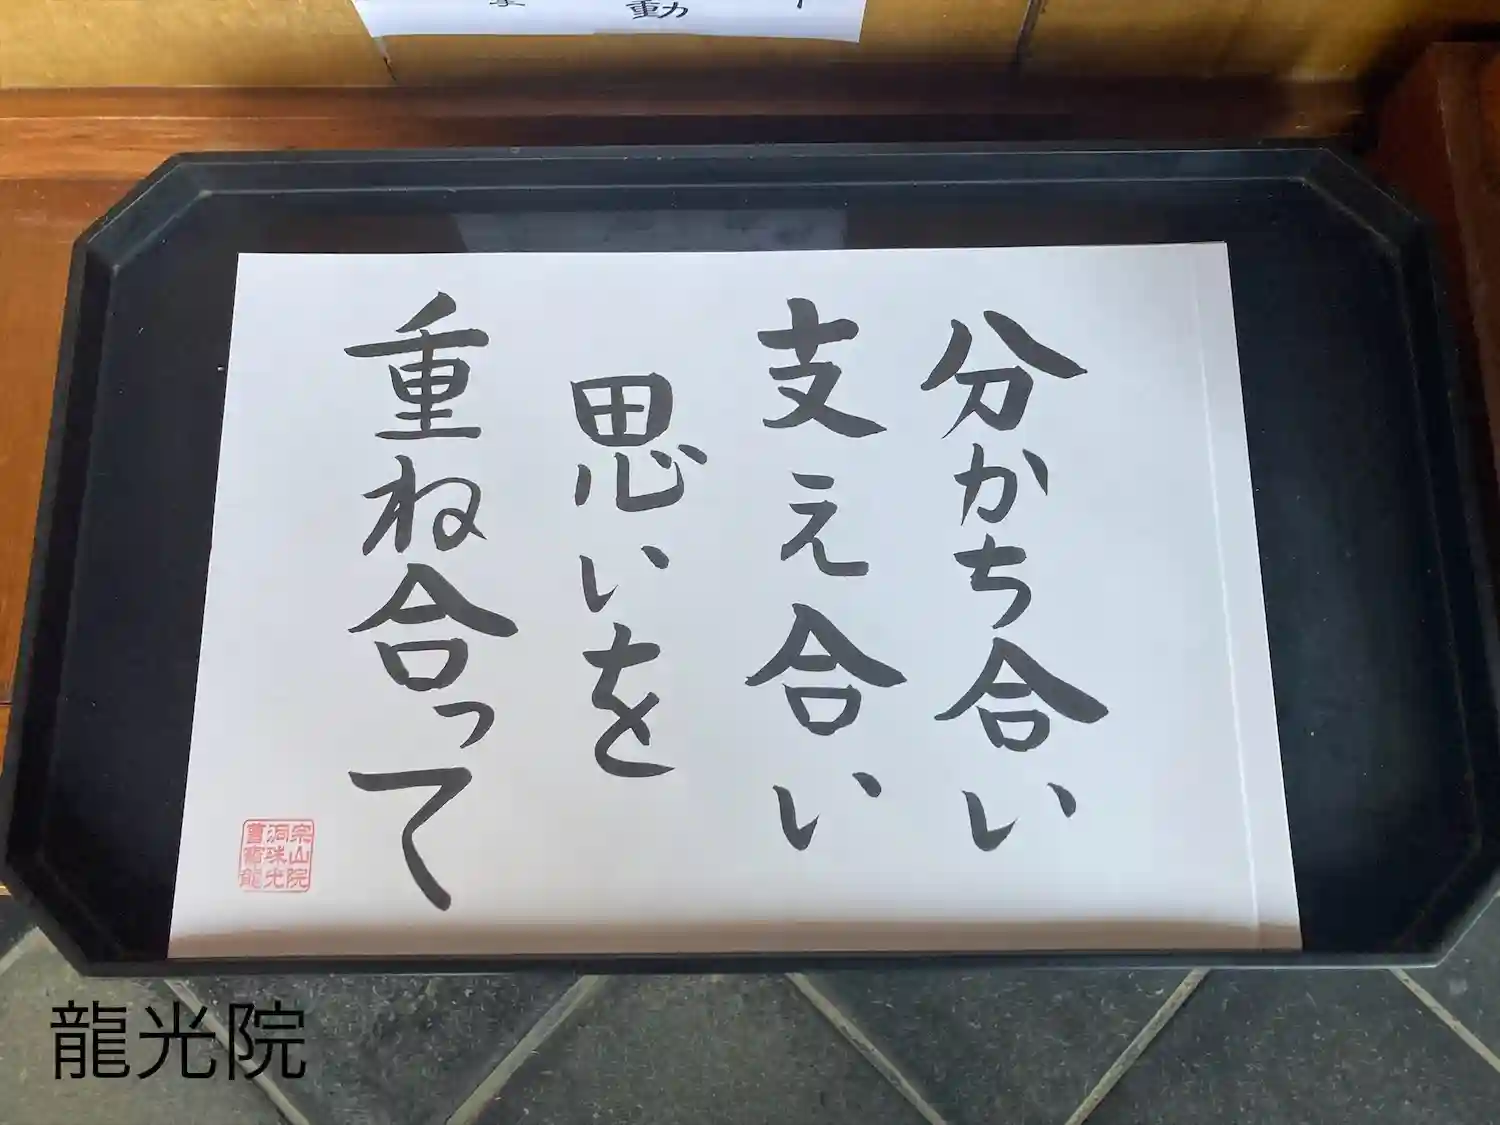 動
分かち合い
支え合い
思いを
重ね合って
曹洞宗
宝珠山
龍光院
龍光院